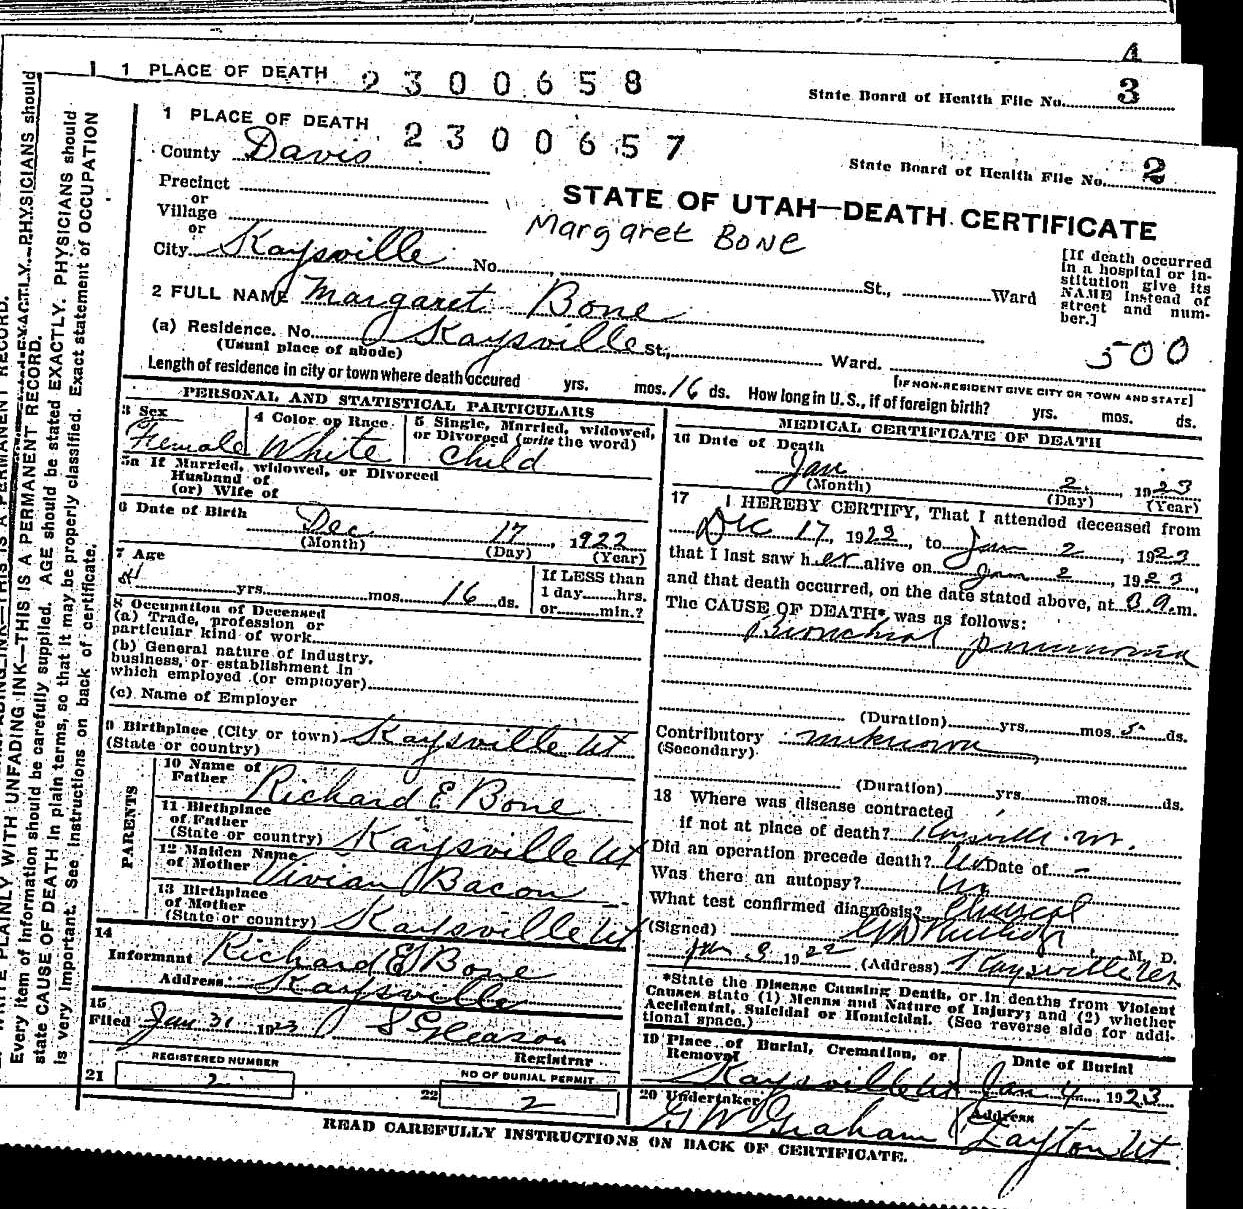 4
1 PLACE OF DEATH 2300658 State Board of Health File No. 3
1 PLACE OF DEATH 2300657 State Board of Health File No. 2
County Davis
Precinct
or
Village
or
City Kaysville No. St., Ward
STATE OF UTAH—DEATH CERTIFICATE
Margaret Bone
[If death occurred in a hospital or institution give its NAME instead of street and number.]
2 FULL NAME Margaret Bone
500
(a) Residence. No. Kaysville St., Ward.
(Usual place of abode)
[IF NON-RESIDENT GIVE CITY OR TOWN AND STATE]
Length of residence in city or town where death occured yrs. mos. 16 ds. How long in U.S., if of foreign birth? yrs. mos. ds.
PERSONAL AND STATISTICAL PARTICULARS
3 Sex
Female
4 Color or Race
White
5 Single, Married, widowed,
or Divorced (write the word)
Child
5a If Married, widowed, or Divorced
Husband of
(or) Wife of
6 Date of Birth
Dec 17, 1922
(Month) (Day) (Year)
7 Age
yrs. mos. 16 ds.
If LESS than
1 day hrs.
or min.?
8 Occupation of Deceased
(a) Trade, profession or
particular kind of work
(b) General nature of industry,
business, or establishment in
which employed (or employer)
(c) Name of Employer
9 Birthplace (City or town) Kaysville Ut
(State or country)
PARENTS
10 Name of
Father Richard E Bone
11 Birthplace
of Father
(State or country) Kaysville Ut
12 Maiden Name
of Mother Vivian Bacon
13 Birthplace
of Mother
(State or country) Kaysville Ut
14
Informant Richard E Bone
Address Kaysville
15
Filed Jan 31 1923 S Gleason
Registrar
REGISTERED NUMBER
21 2
NO OF BURIAL PERMIT
22 2
MEDICAL CERTIFICATE OF DEATH
16 Date of Death
Jan 2, 1923
(Month) (Day) (Year)
17 I HEREBY CERTIFY, That I attended deceased from
Dec 17, 1922, to Jan 2, 1923
that I last saw her alive on Jan 2, 1923,
and that death occurred, on the date stated above, at m.
The CAUSE OF DEATH* was as follows:
Bronchial pneumonia
(Duration) yrs. mos. 5 ds.
Contributory unknown
(Secondary)
(Duration) yrs. mos. ds.
18 Where was disease contracted
if not at place of death? Kaysville Ut.
Did an operation precede death? No Date of -
Was there an autopsy? No
What test confirmed diagnosis? Clinical
(Signed) M. D.
Jan 3 1922 (Address) Kaysville Utah
*State the Disease Causing Death, or in deaths from Violent
Causes state (1) Means and Nature of Injury; and (2) whether
Accidental, Suicidal or Homicidal. (See reverse side for addi-
tional space.)
19 Place of Burial, Cremation, or
Removal
Kaysville Ut
Date of Burial
Jan 4, 1923
20 Undertaker
G W Graham
Address
Layton Ut
READ CAREFULLY INSTRUCTIONS ON BACK OF CERTIFICATE.
WRITE PLAINLY WITH UNFADING INK—THIS IS A PERMANENT RECORD.
Every item of information should be carefully supplied. AGE should be stated EXACTLY. PHYSICIANS should
state CAUSE OF DEATH in plain terms, so that it may be properly classified. Exact statement of OCCUPATION
is very important. See instructions on back of certificate.